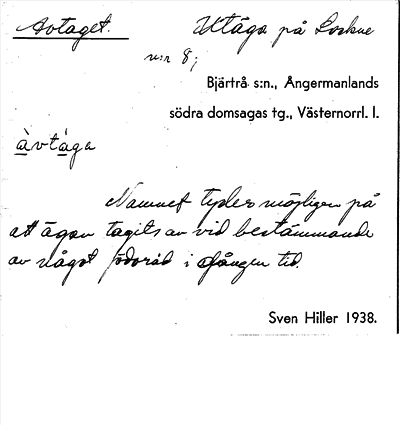 Avtaget. Utäga på Lockne
n:r 8;
Bjärtrå s:n., Ångermanlands
södra domsagas tg., Västernorrl. l.
àvtàga
Namnet tyder möjligen på
att ägan tagits av vid bestämmande
av något födoråd i gången tid.
Sven Hiller 1938.